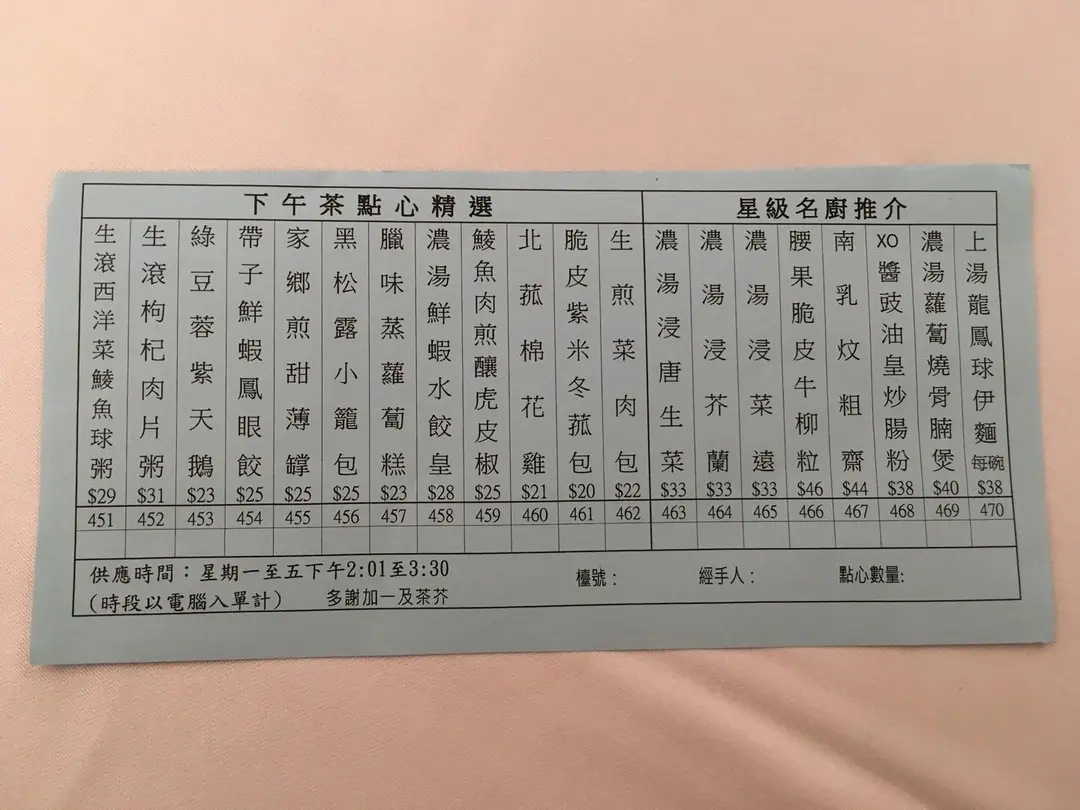 下午茶點心精選
星級名廚推介
生滾西洋菜鯪魚球粥 $29 451
生滾枸杞肉片粥 $31 452
綠豆蓉紫天鵝 $23 453
帶子鮮蝦鳳眼餃 $25 454
家鄉煎甜薄罉 $25 455
黑松露小籠包 $25 456
臘味蒸蘿蔔糕 $23 457
濃湯鮮蝦水餃皇 $28 458
鯪魚肉煎釀虎皮椒 $25 459
北菰棉花雞 $21 460
脆皮紫米冬菰包 $20 461
生煎菜肉包 $22 462
濃湯浸唐生菜 $33 463
濃湯浸芥蘭 $33 464
濃湯浸菜遠 $33 465
腰果脆皮牛柳粒 $46 466
南乳炆粗齋 $44 467
XO醬豉油皇炒腸粉 $38 468
濃湯蘿蔔燒骨腩煲 $40 469
上湯龍鳳球伊麵每碗 $38 470
供應時間：星期一至五下午2:01至3:30
(時段以電腦入單計) 多謝加一及茶芥
檯號：
經手人：
點心數量: